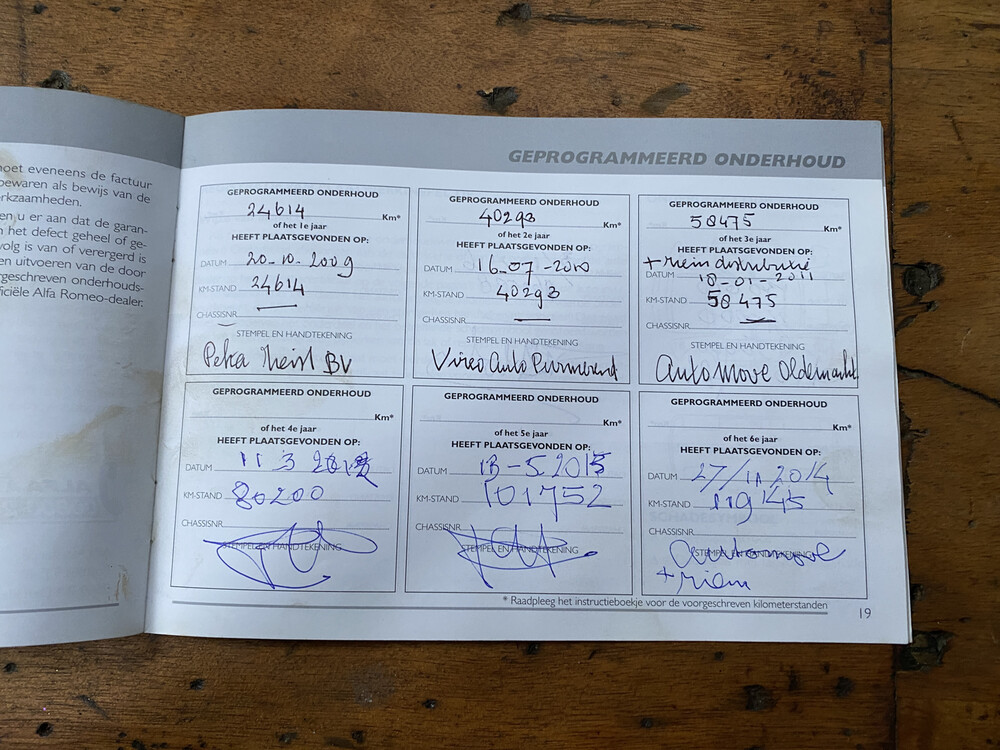 oet eveneens de factuur
bewaren als bewijs van de
rkzaamheden.
en u er aan dat de garan-
n het defect geheel of ge-
volg is van of verergerd is
en uitvoeren van de door
rgeschreven onderhouds-
ficiële Alfa Romeo-dealer.
GEPROGRAMMEERD ONDERHOUD
GEPROGRAMMEERD ONDERHOUD
24614 Km*
of het 1e jaar
HEEFT PLAATSGEVONDEN OP:
DATUM 20-10-2009
KM-STAND 24614
CHASSISNR. —
STEMPEL EN HANDTEKENING
BV
GEPROGRAMMEERD ONDERHOUD
40293 Km*
of het 2e jaar
HEEFT PLAATSGEVONDEN OP:
DATUM 16-07-2010
KM-STAND 40293
CHASSISNR. —
STEMPEL EN HANDTEKENING
Auto Purmerend
GEPROGRAMMEERD ONDERHOUD
58475 Km*
of het 3e jaar
HEEFT PLAATSGEVONDEN OP:
+ riem distributie
DATUM 18-01-2011
KM-STAND 58475
CHASSISNR. —
STEMPEL EN HANDTEKENING
Automove Oldemarkt
GEPROGRAMMEERD ONDERHOUD
Km*
of het 4e jaar
HEEFT PLAATSGEVONDEN OP:
DATUM 11 3 2012
KM-STAND 80200
CHASSISNR.
STEMPEL EN HANDTEKENING
GEPROGRAMMEERD ONDERHOUD
Km*
of het 5e jaar
HEEFT PLAATSGEVONDEN OP:
DATUM 13-5 2013
KM-STAND 101752
CHASSISNR.
STEMPEL EN HANDTEKENING
GEPROGRAMMEERD ONDERHOUD
Km*
of het 6e jaar
HEEFT PLAATSGEVONDEN OP:
DATUM 27/11 2014
KM-STAND 119145
CHASSISNR.
STEMPEL EN HANDTEKENING
Automove
+ riem
* Raadpleeg het instructieboekje voor de voorgeschreven kilometerstanden
19